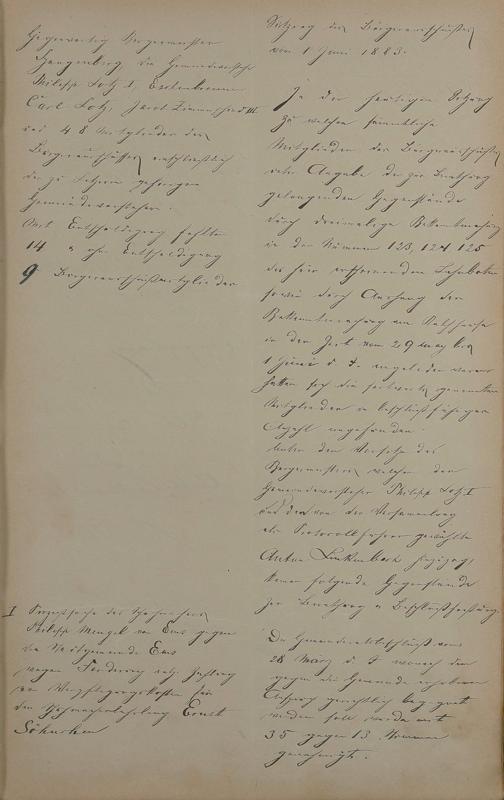 Gegenwärtig Bürgermeister
Spangenberg, die Gemeindevorsteher
Philipp Lotz I,
Carl Lotz, Jacob Zimmerschied III
und 48 Mitglieder des
Bürgerausschusses einschließlich
der zu Letzteren gehörigen
Gemeindevorsteher.
Mit Entschuldigung fehlten
14 u. ohne Entschuldigung
9 Bürgerausschußmitglieder
Sitzung des Bürgerausschusses
vom 1 Juni 1883.
In der heutigen Sitzung
zu welcher sämmtliche
Mitglieder des Bürgerausschusses
unter Angabe der zur Berathung
gelangenden Gegenstände
durch dreimalige Bekanntmachung
in den Nummern 123, 124 125
des hier erscheinenden Lahnboten
sowie durch Aushang der
Bekanntmachung am Rathhause
in der Zeit vom 29 May bis
1 Juni d. J. eingeladen waren
hatten sich die seitwärts genannten
Mitglieder in beschlußfähiger
Anzahl eingefunden.
Unter dem Vorsitze des
Bürgermeisters, welcher den
Gemeindevorsteher Philipp Lotz I
und den von der Versammlung
als Protocollführer gewählte
Anton Linkenbach
kamen folgende Gegenstände
zur Berathung u Beschlußfassung.
I Prozeßsache des
Philipp Mengel von Ems gegen
die Stadtgemeinde Ems
wegen Forderung
von Verpflegungskosten für
den Ernst
Söhnchen
Der Gemeinderathsbeschluß vom
28 März d. J. wonach den
gegen die Gemeinde erhobenen
Anspruch gerichtlich begegnet
werden soll wurde mit
35 gegen 13 Stimmen
genehmigt.